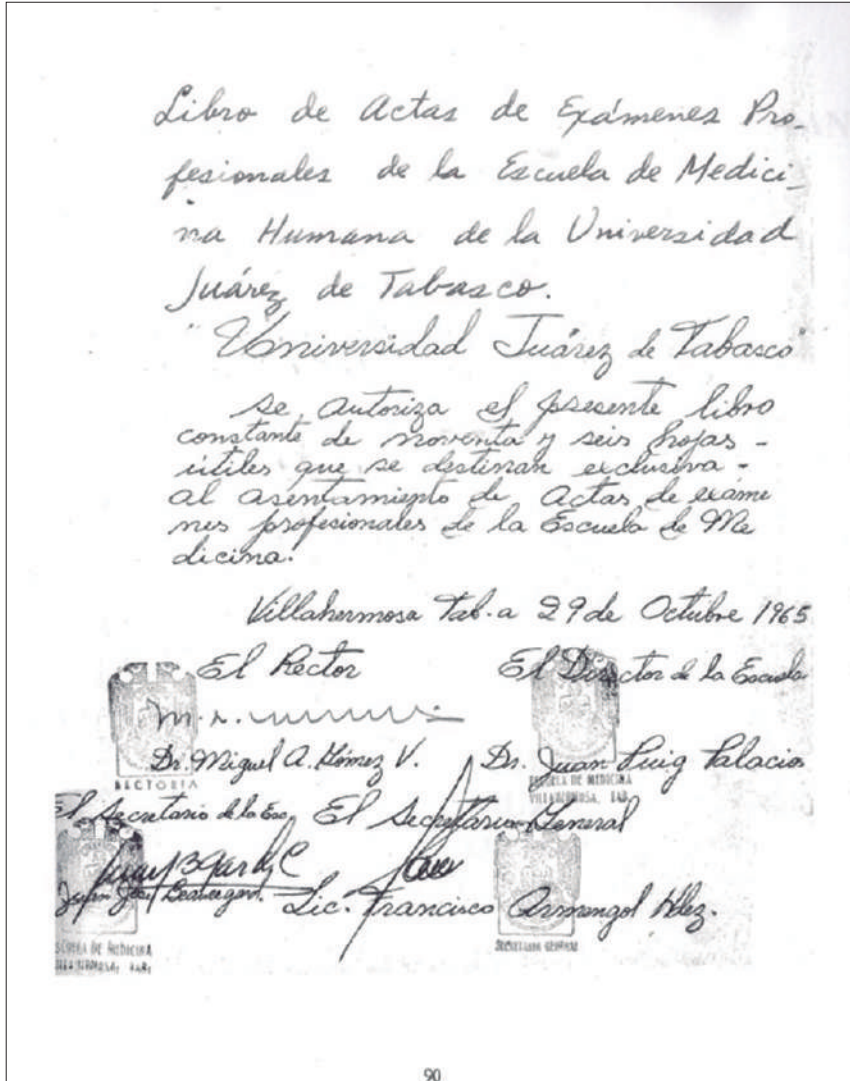 Libro de Actas de Exámenes Pro-
fesionales de la Escuela de Medici-
na Humana de la Universidad
Juárez de Tabasco.
"Universidad Juárez de Tabasco"
se autoriza el presente libro
constante de noventa y seis hojas -
útiles que se destinan exclusiva -
al asentamiento de Actas de exáme
nes profesionales de la Escuela de Me
dicina.
Villahermosa Tab. a 29 de Octubre 1965
El Rector El Director de la Escuela
Dr. Miguel A. Gómez V. Dr. Juan Puig Palacios
RECTORIA ESCUELA DE MEDICINA
VILLAHERMOSA, TAB.
El Secretario de la Esc. El Secretario General
Juan José
Lic. Francisco Armengol Hdez.
ESCUELA DE MEDICINA SECRETARIA GENERAL
VILLAHERMOSA, TAB.
90